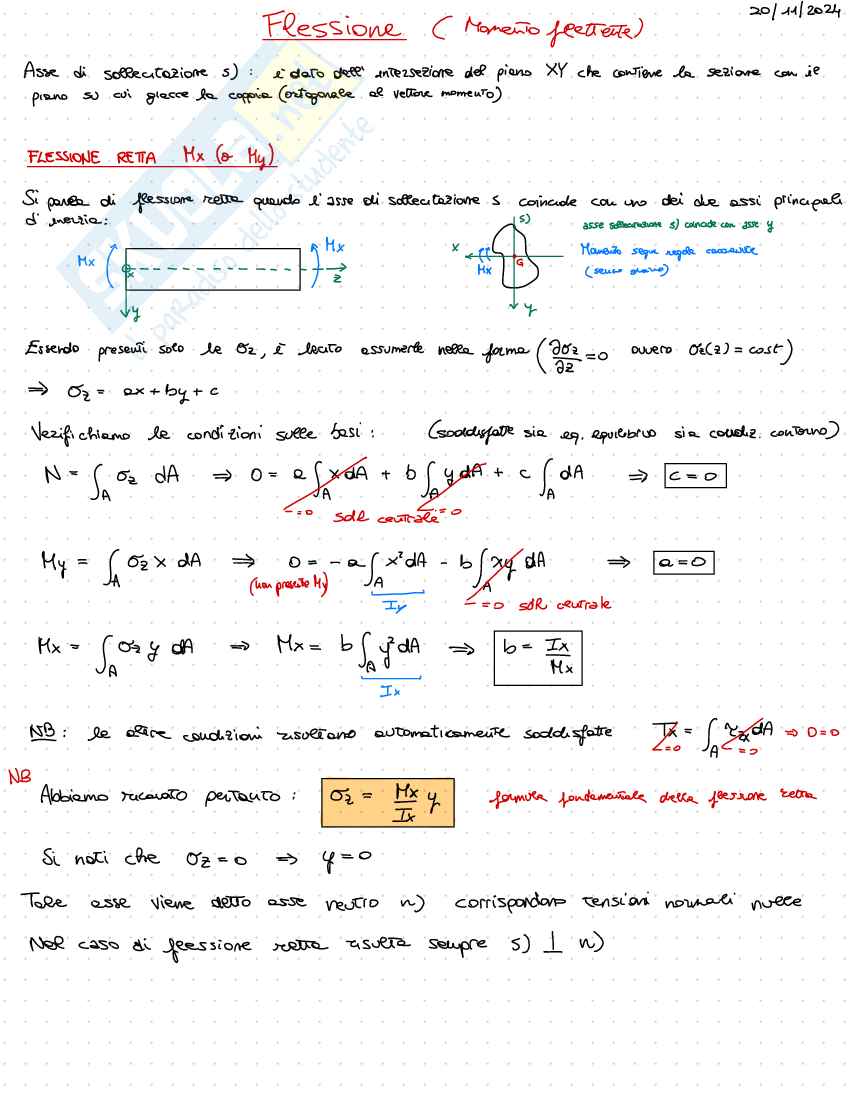 20/11/2024
Flessione ( Momento flettente)
Asse di sollecitazione s) : è dato dall' intersezione del piano XY che contiene la sezione con il
piano su cui giace la coppia (ortogonale al vettore momento)
FLESSIONE RETTA Mx (o My)
Si parla di flessione retta quando l'asse di sollecitazione s coincide con uno dei due assi principali
d' inerzia:
Mx x Mx z y
s) x Mx G y
asse sollecitazione s) coincide con asse y
Momento segue regola
(senso orario)
Essendo presenti solo le σz, è lecito assumerle nella forma ( ∂σz/∂z = 0 ovvero σz(z) = cost )
⇒ σz = ax + by + c
Verifichiamo le condizioni sulle basi : (soddisfatte sia eq. equilibrio sia condiz. contorno)
N = ∫A σz dA ⇒ 0 = a ∫A x dA + b ∫A y dA + c ∫A dA ⇒ c = 0
=0 sdR centrale =0
My = ∫A σz x dA ⇒ 0 = - a ∫A x² dA - b ∫A xy dA ⇒ a = 0
(non presente My) Iy =0 sdR centrale
Mx = ∫A σz y dA ⇒ Mx = b ∫A y² dA ⇒ b = Ix/Mx
Ix
NB : le altre condizioni risultano automaticamente soddisfatte Tx = ∫A τzx dA ⇒ 0=0
=0 =0
NB
Abbiamo ricavato pertanto : σz = Mx/Ix y formula fondamentale della flessione retta
Si noti che σz = 0 ⇒ y = 0
Tale asse viene detto asse neutro n) corrispondono tensioni normali nulle
Nel caso di flessione retta risulta sempre s) ⊥ n)
SKUOLA.NET
il paradiso dello studente